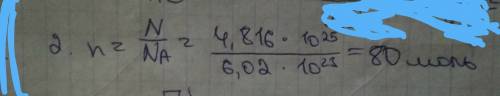 2. n = N/NA = 4,816 · 10²⁵ / 6,02 · 10²³ = 80 моль